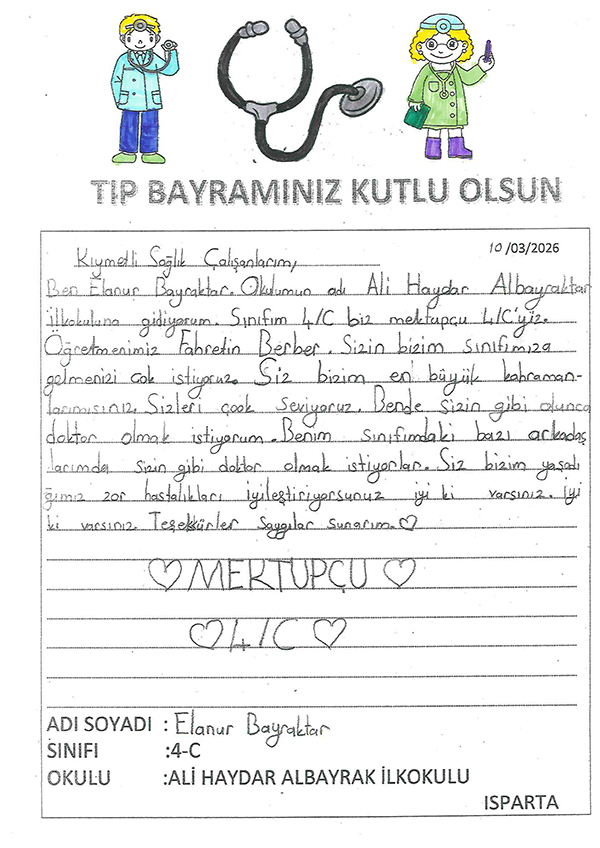 TIP BAYRAMINIZ KUTLU OLSUN
10/03/2026
Kıymetli Sağlık Çalışanlarım,
Ben Elanur Bayraktar. Okulumun adı Ali Haydar Albayraktar
ilkokuluna gidiyorum. Sınıfım 4/C biz mektupçu 4/C'yiz.
Öğretmenimiz Fahretin Berber. Sizin bizim sınıfımıza
gelmenizi çok istiyoruz. Siz bizim en büyük kahraman-
larımısınız. Sizleri çook seviyoruz. Bende sizin gibi olunca
doktor olmak istiyorum. Benim sınıfımdaki bazı arkadaş
larımda sizin gibi doktor olmak istiyorlar. Siz bizim yaşadı
ğımız zor hastalıkları iyileştiriyorsunuz iyi ki varsınız. İyi
ki varsınız. Teşekkürler Saygılar sunarım.♡
♡ MEKTUPÇU ♡
♡ 4/C ♡
ADI SOYADI : Elanur Bayraktar
SINIFI :4-C
OKULU :ALİ HAYDAR ALBAYRAK İLKOKULU
ISPARTA